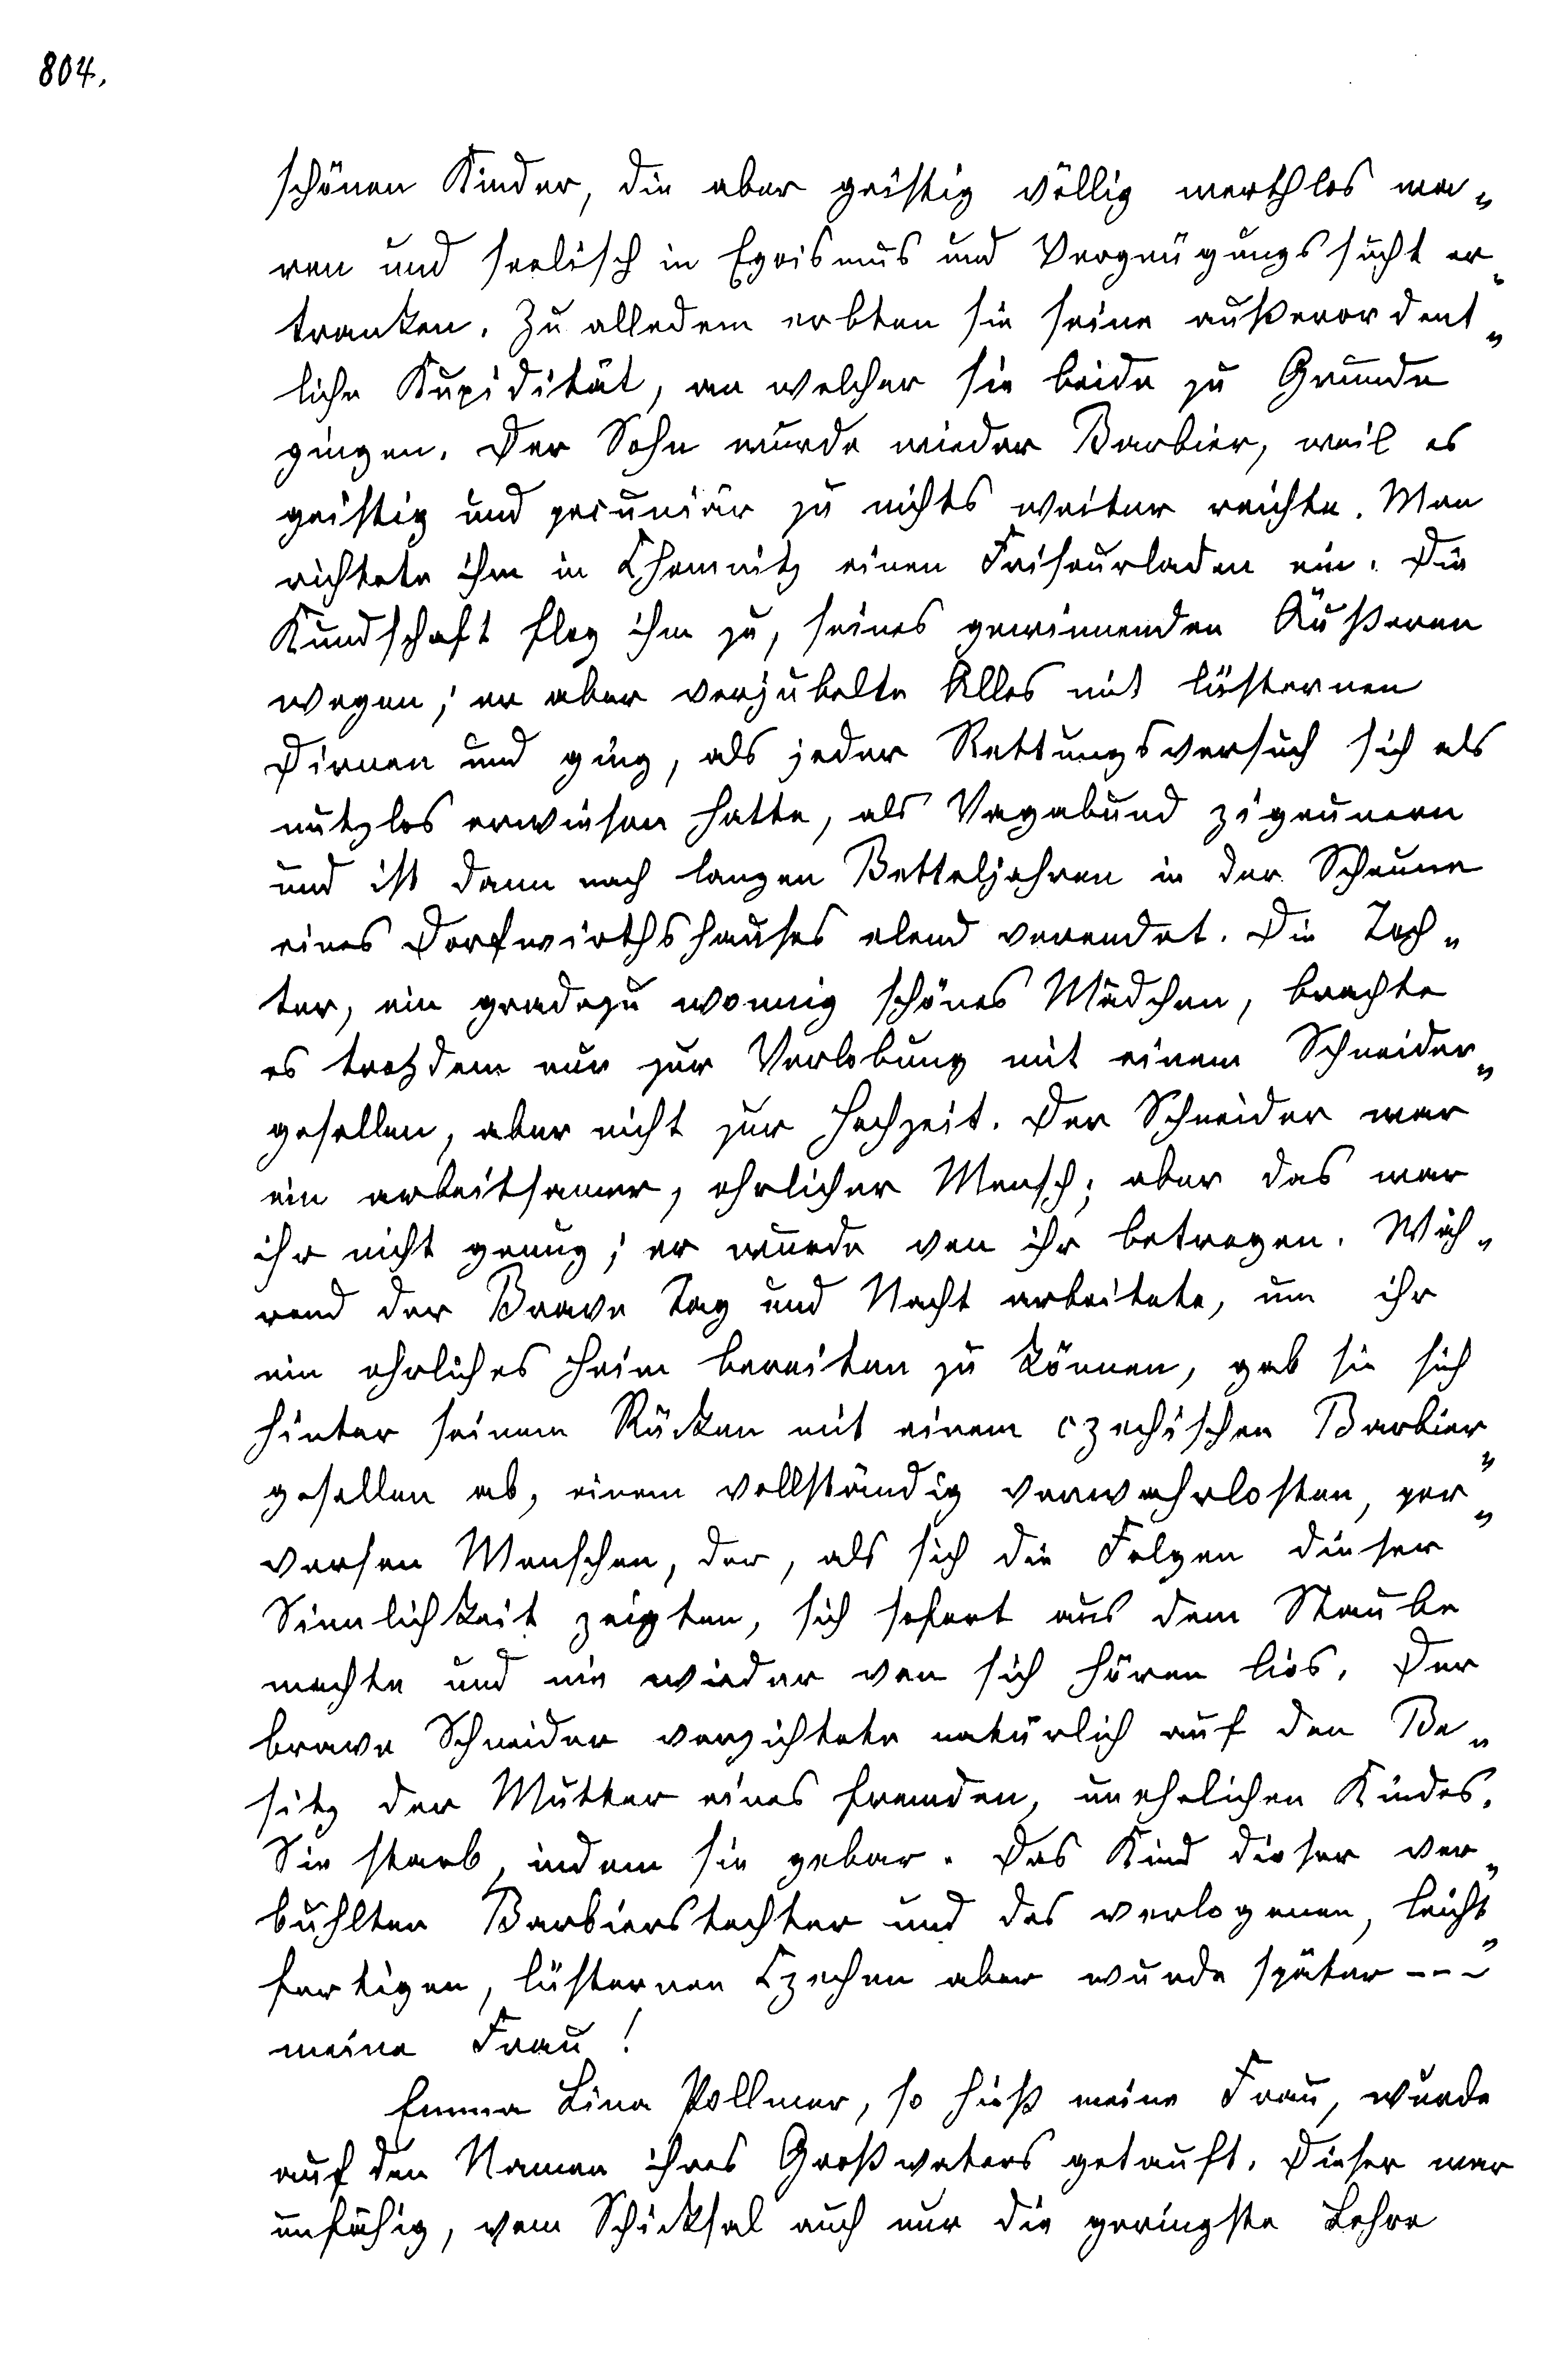 804.
schönen Kinder, die aber geistig völlig werthlos wa„
ren und seelisch in Egoismus und Vergnügungssucht er„
tranken. Zu alledem erbten sie seine außerordent„
liche Kupidität, an welcher sie beide zu Grunde
gingen. Der Sohn wurde wieder Barbier, weil es
geistig und pecuniär zu nichts weiter reichte. Man
richtete ihm in Chemnitz einen Friseurladen ein. Die
Kundschaft flog ihm zu, seines gewinnenden Äußeren
wegen; er aber verjubelte Alles mit lüsternen
Dirnen und ging, als jeder Rettungsversuch sich als
nutzlos erwiesen hatte, als Vagabund zigeunern
und ist dann nach langen Betteljahren in der Scheune
eines Dorfwirthshauses elend verendet. Die Toch„
ter, ein gradezu wonnig schönes Mädchen, brachte
es trotzdem nur zur Verlobung mit einem Schneider„
gesellen, aber nicht zur Hochzeit. Der Schneider war
ein arbeitsamer, ehrlicher Mensch; aber das war
ihr nicht genug; er wurde von ihr betrogen. Wäh„
rend der Brave Tag und Nacht arbeitete, um ihr
ein ehrliches Heim bereiten zu können, gab sie sich
hinter seinem Rücken mit einem czechischen Barbier„
gesellen ab, einem vollständig verwahrlosten, per„
versen Menschen, der, als sich die Folgen dieser
Sinnlichkeit zeigten, sich sofort aus dem Staube
machte und nie wieder von sich hören lies. Der
brave Schneider verzichtete natürlich auf den Be„
sitz der Mutter eines fremden, unehelichen Kindes.
Sie starb, indem sie gebar. Das Kind dieser ver„
buhlten Barbierstochter und des verlogenen, leicht„
fertigen, lüsternen Czechen aber wurde später – – –
meine Frau!
Emma Lina Pollmer, so hieß meine Frau, wurde
auf den Namen ihres Großvaters getauft. Dieser war
unfähig, vom Schicksal auch nur die geringste Lehre